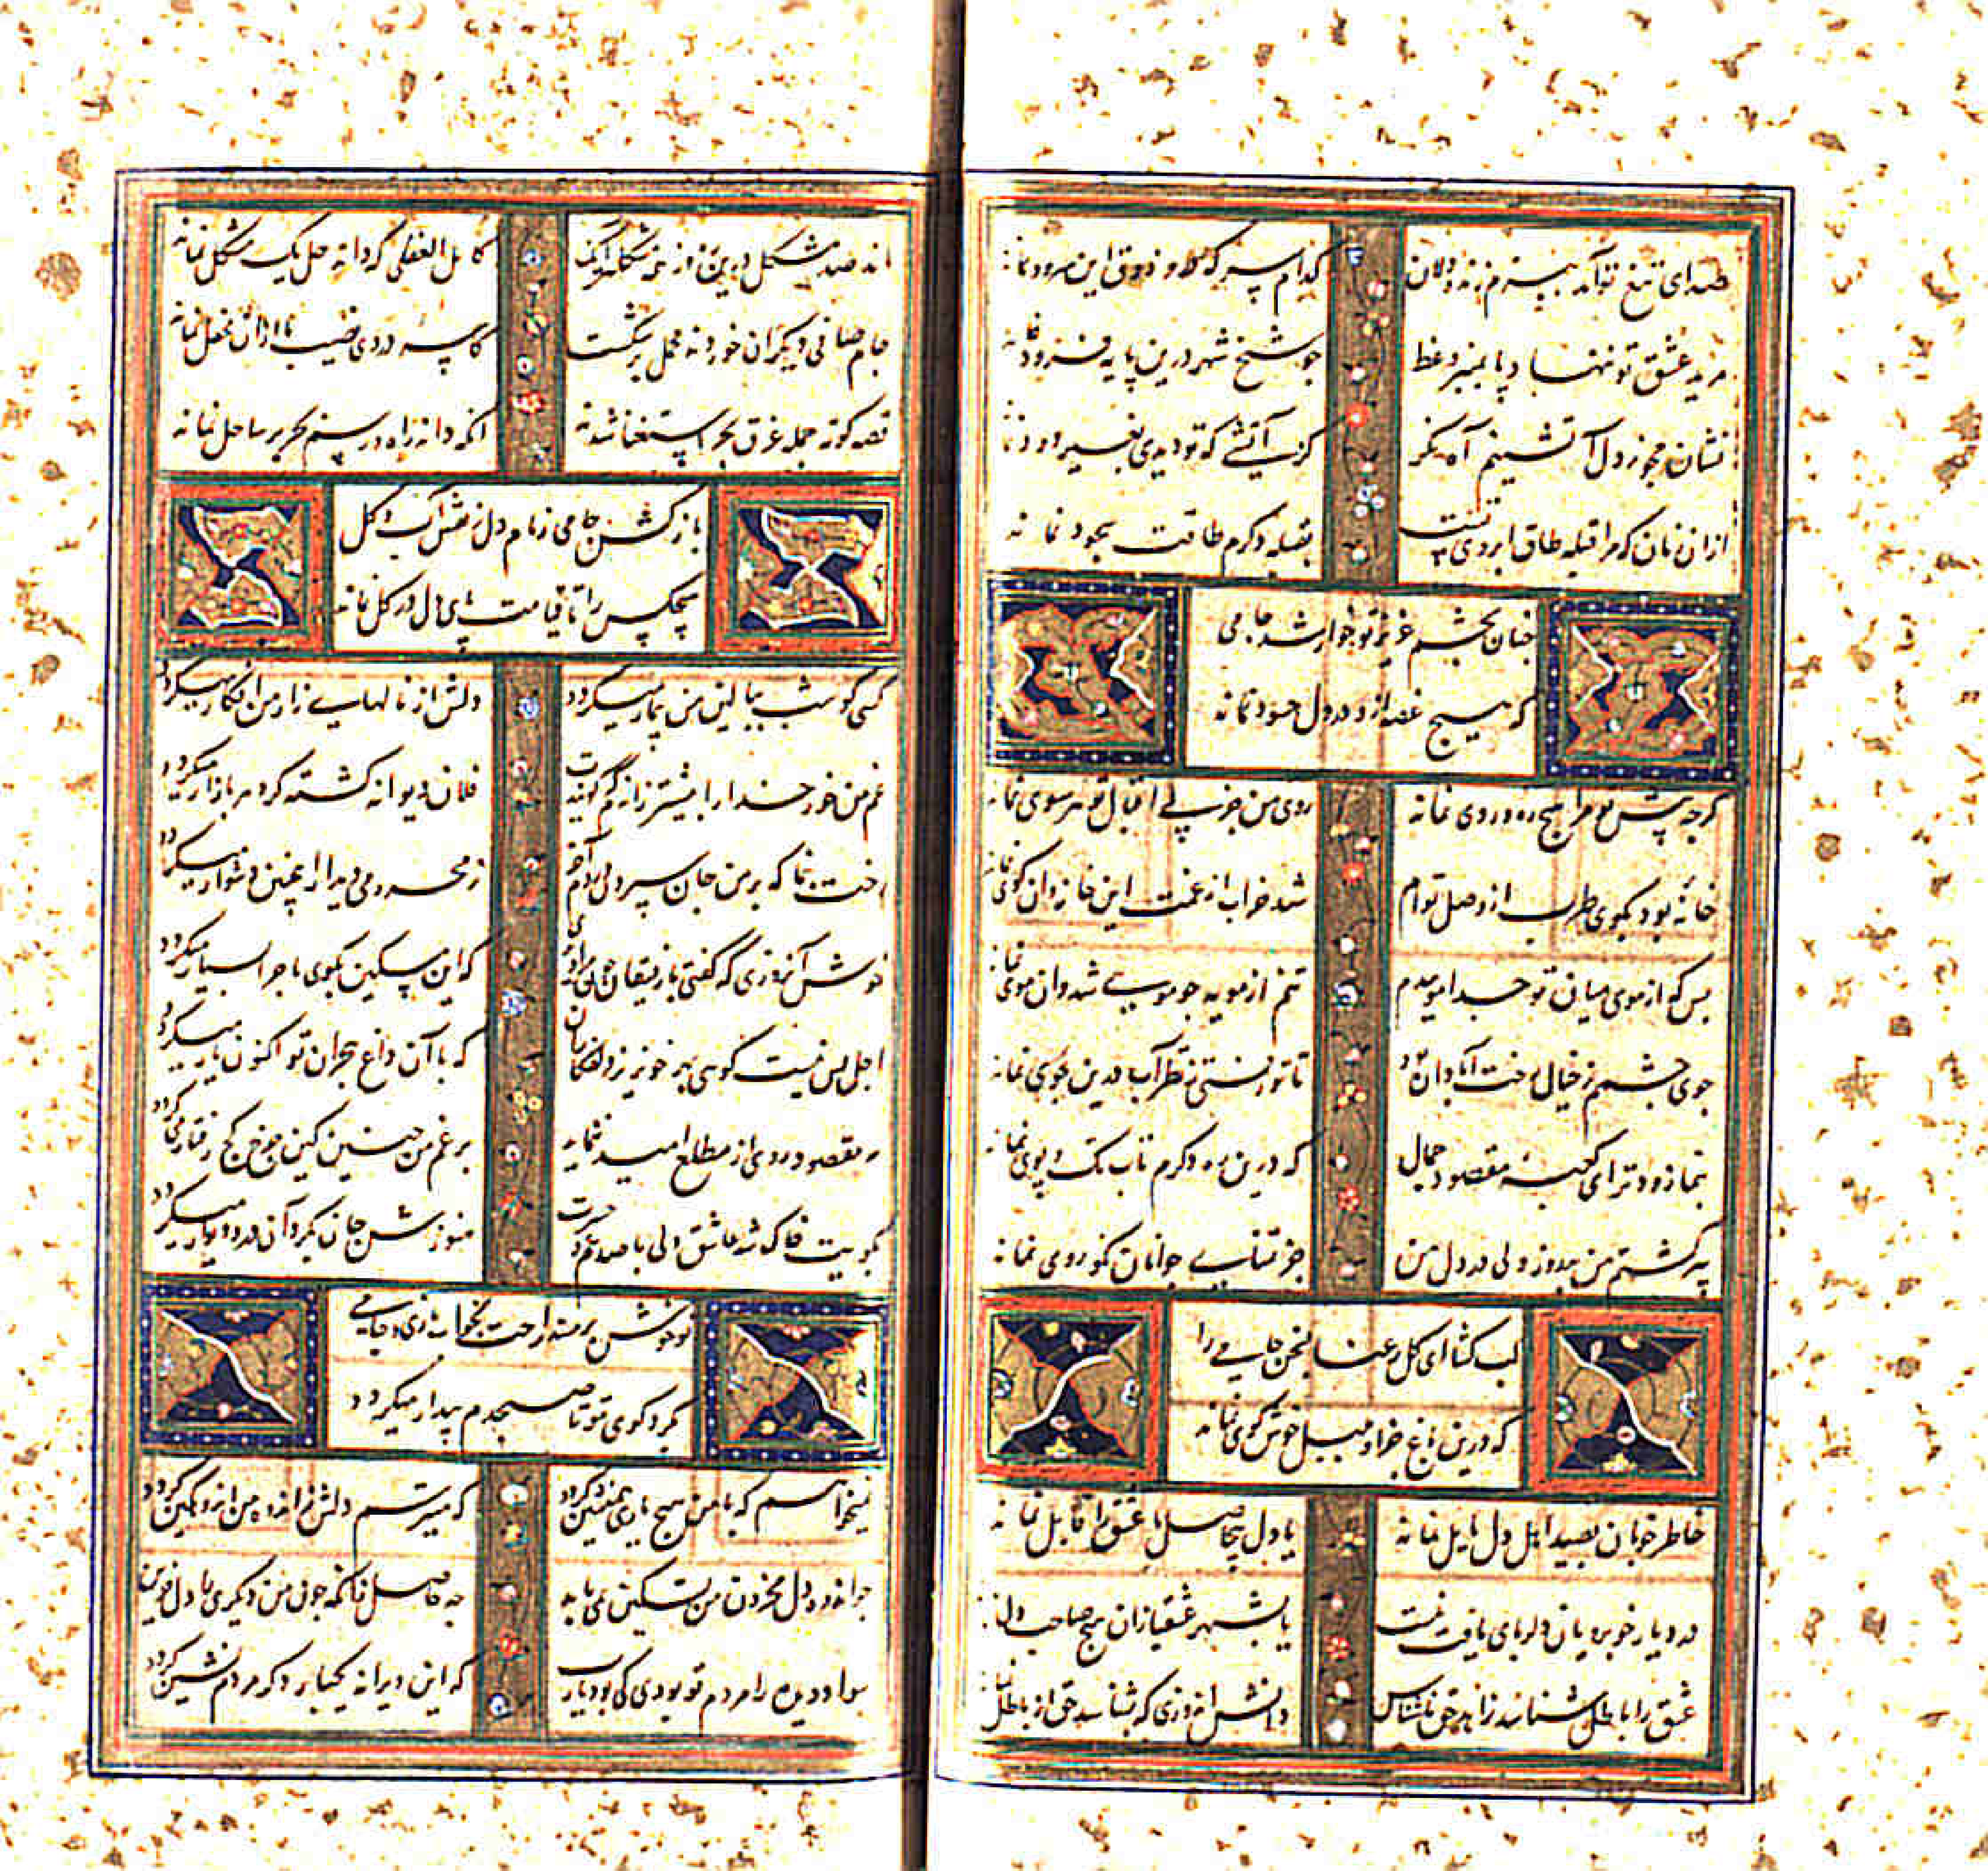 صدای تیغ تو آمد ببزم زنده دلان
کدام سر که در و ذوق این سرود نماند
مرید عشق تو ننهاد پا بمنبر وعظ
چو شیخ شهر درین پایه فرود نماند
نشان مجو ز دل آتشینم آه نگر
کزین آتشی که تو دیدی بغیر دود نماند
ازان زمان که مرا قبله طاق ابروی تست
بقبله دگرم طاقت سجود نماند
جنان بچشم عزیز تو خوار شد جامی
که هیچ غصه ازو در دل حسود نماند
کرچه پیش تو مرا هیچ ره و روی نماند
روی من جز پی اقبال تو هر سوی نماند
خانهٔ بود بکوی طرب از وصل توام
شد خراب از غمت این خانه و آن کوی نماند
بس که از موی میان تو جدا مویدم
تنم از مویه چو مویی شد و آن موی نماند
جوی چشمم ز خیال رخت آبادان بود
تا تو رفتی ز نظر آب درین جوی نماند
بنما زودتر ای کعبهٔ مقصود جمال
که درین ره دکرم تاب تک و پوی نماند
پیر کشتم من بدروز ولی در دل من
جز تمنای جوانان نکوروی نماند
لب کشا ای کل رعنا بسخن جامی را
که درین باغ جز او بلبل خوش کوی نماند
خاطر خوبان بصید اهل دل مایل نماند
یا دل بیحاصل ما عشق را قابل نماند
در دیار خوبرویان دلربایی یافت نیست
یا بشهر عشقبازان هیچ صاحب دل نماند
عشق را باطل شناسد زاهد حق ناشناس
دانش اندوزی که بشناسد حق از باطل نماند
ماند صد مشکل درین
کامل العقلی که داند حل یک مشکل نماند
جام صافی دیکران خوردند محمل بر شکست
کاسه دردی نصیب ما ازان محفل نماند
قصه کوته جمله غرق بحر استغنا شدند
آنکه داند راه و رسم بحر بر ساحل نماند
بازکش جامی زمام دل ز نقش آب و کل
هیچکس را تا قیامت پای دل در کل نماند
کسی کو شب ببالین من بیمار میکردد
دلش از نالهای زار من افکار میکردد
غم من خور خدا را بیشتر زان کم کویند
فلان دیوانه کشته کرد هر بازار میکردد
رخت بنما که بر من جان سپردن
ز محرومی دیدار اینچنین دشوار میکردد
خوش آنروزی که کفتی با رقیبان
که این مسکین بکوی ماجرا بسیار میکردد
اجل بس نیست کویی بهر خونریز
که با آن داغ هجران تو اکنون یار میکردد
مه مقصود روی از مطلع امید ننماید
برغم من چنین کین چرخ کج رفتار میکردد
بکویت خاک شد عاشق ولی با صد غم و حسرت
هنوزش جان بکرد آن در و دیوار میکردد
تو خوش بر مسند راحت بخواب نازی و جامی
بکرد کوی تو تا صبحدم بیدار میکردد
نمیخواهم که با من هیچ یاری همنشین کردد
که میترسم دلش ز اندوه من اندوهکین کردد
چو اندوه دل محزون من تسکین نمی یابد
چه حاصل زانکه چون من دیکری با دل حزین
سواد دیده را مردم تو بودی کی بود یارب
که این ویرانه یکبار دکر مردم نشین کردد